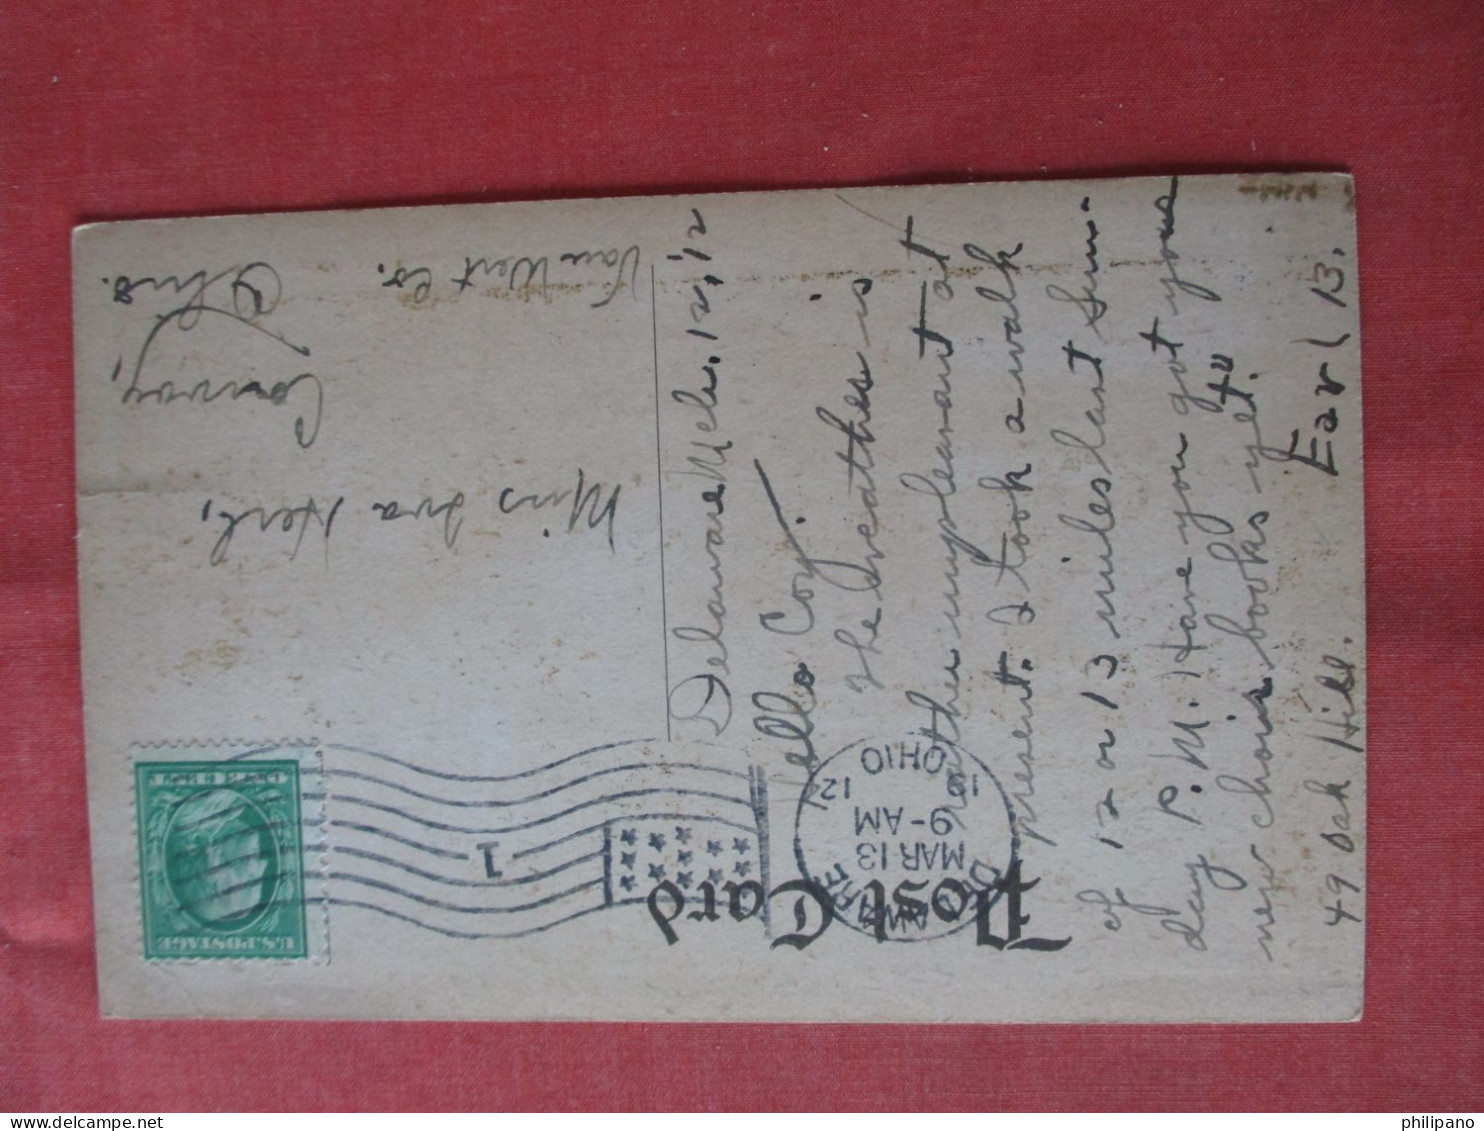 Post Card
DELAWARE
MAR 13
9-AM
12
OHIO
1
U.S. POSTAGE
Miss Iva Herl,
Convoy,
Ohio.
Van Wert Co.
Delaware Mch. 12, 12,
Hello Coz.
The Weather is
rather unpleasant at
present. I took a walk
of 12 or 13 miles last Sun-
day P.M. Have you got your
new choir books yet.
Earl 13.
49 Oak Hill.
philipano